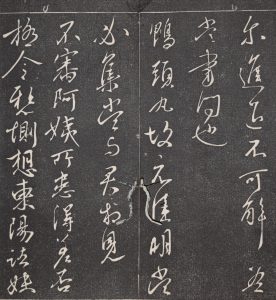 尔進退不可解吾
當書問也
鴨頭丸故不佳明當
必集當與君相見
不審阿姨所患得差否
極令懸惻想東陽諸妹